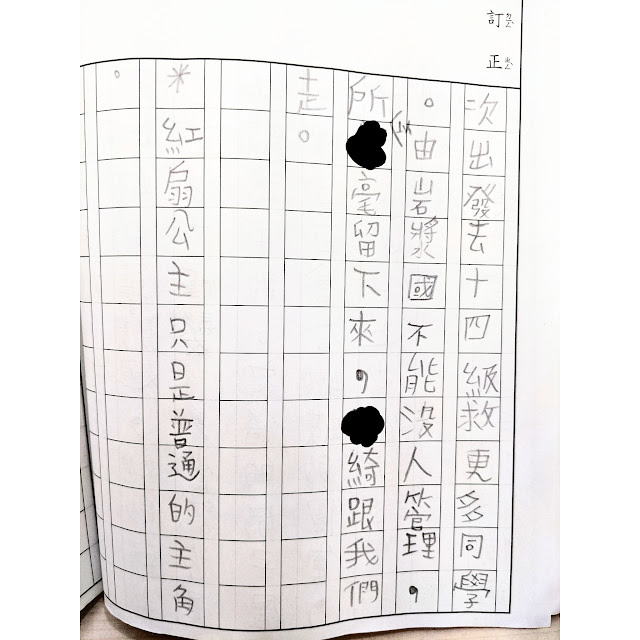 訂正
次出發去十四級救更多同學
。由岩漿國不能沒人管理，
所以毫留下來，綺跟我們
走。
*紅扇公主只是普通的主角
。